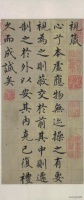 視箴
心兮本虛應物無迹操之有要
視為之則蔽交於前其中則遷
制之於外以安其內克己復禮
久而成誠矣